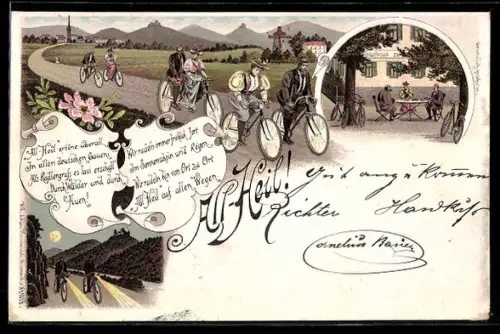 „All Heil“ ertöne überall
In allen deutschen Gauen,
Als Radlergruß es laut erschall
Durch Wälder und durch
Auen!
Wir radeln immer fort
Im Sonnenschein und Regen
Wir radeln hin von Ort zu Ort
All Heil auf allen Wegen.
All-Heil!
Gut angekommen
Richter
Cornelius Bauer